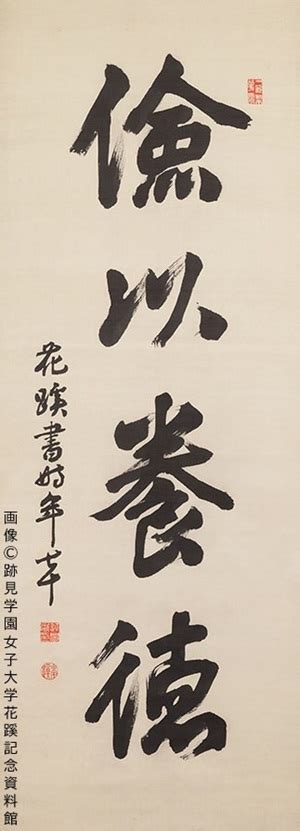 儉以養徳
花蹊書時年七十
画像©跡見学園女子大学花蹊記念資料館